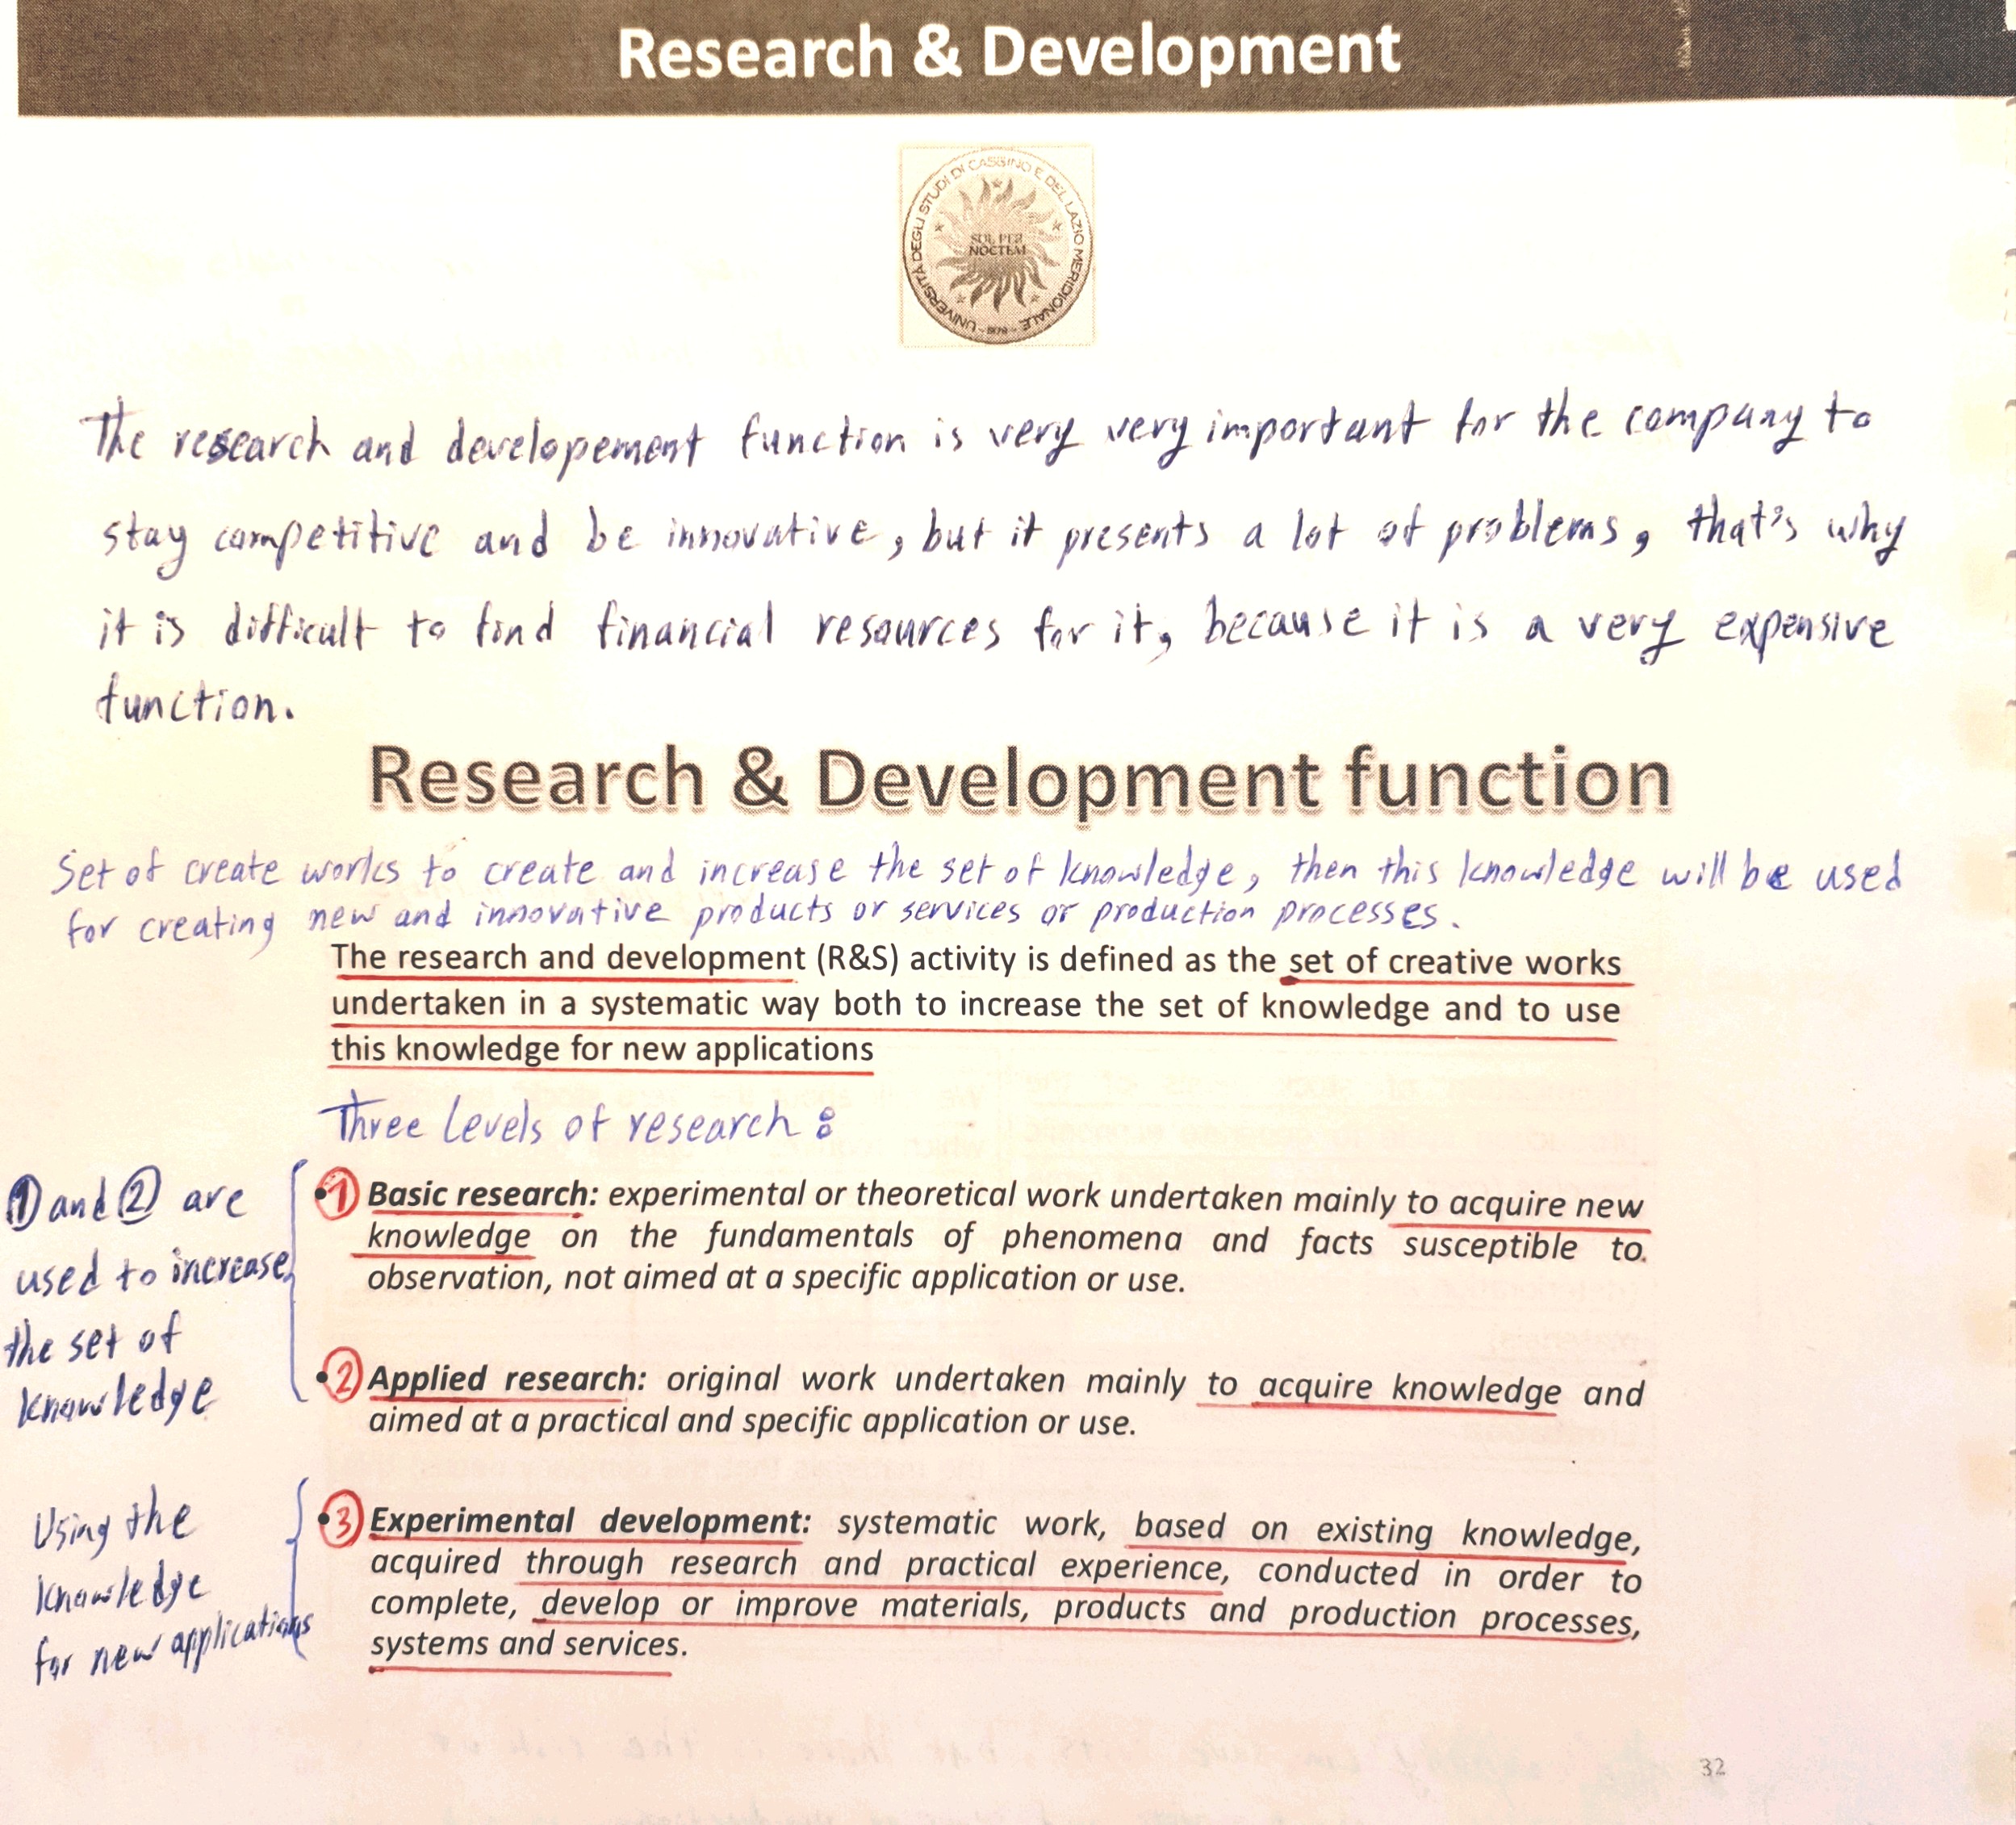 Research & Development
UNIVERSITÀ DEGLI STUDI DI CASSINO E DEL LAZIO MERIDIONALE
SOL PER
NOCTEM
The research and developement function is very very important for the company to
stay competitive and be innovative, but it presents a lot of problems, that's why
it is difficult to find financial resources for it, because it is a very expensive
function.
Research & Development function
Set of create works to create and increase the set of knowledge, then this knowledge will be used
for creating new and innovative products or services or production processes.
The research and development (R&S) activity is defined as the set of creative works
undertaken in a systematic way both to increase the set of knowledge and to use
this knowledge for new applications
Three levels of research:
① and ② are
used to increase
the set of
knowledge
•① Basic research: experimental or theoretical work undertaken mainly to acquire new
knowledge on the fundamentals of phenomena and facts susceptible to
observation, not aimed at a specific application or use.
•② Applied research: original work undertaken mainly to acquire knowledge and
aimed at a practical and specific application or use.
Using the
knowledge
for new applications
•③ Experimental development: systematic work, based on existing knowledge,
acquired through research and practical experience, conducted in order to
complete, develop or improve materials, products and production processes,
systems and services.
32